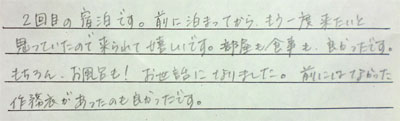 2回目の宿泊です。前に泊まってから、もう一度来たいと
思っていたので来られて嬉しいです。部屋も食事も、良かったです。
もちろん、お風呂も！お世話になりました。前にはなかった
作務衣があったのも良かったです。